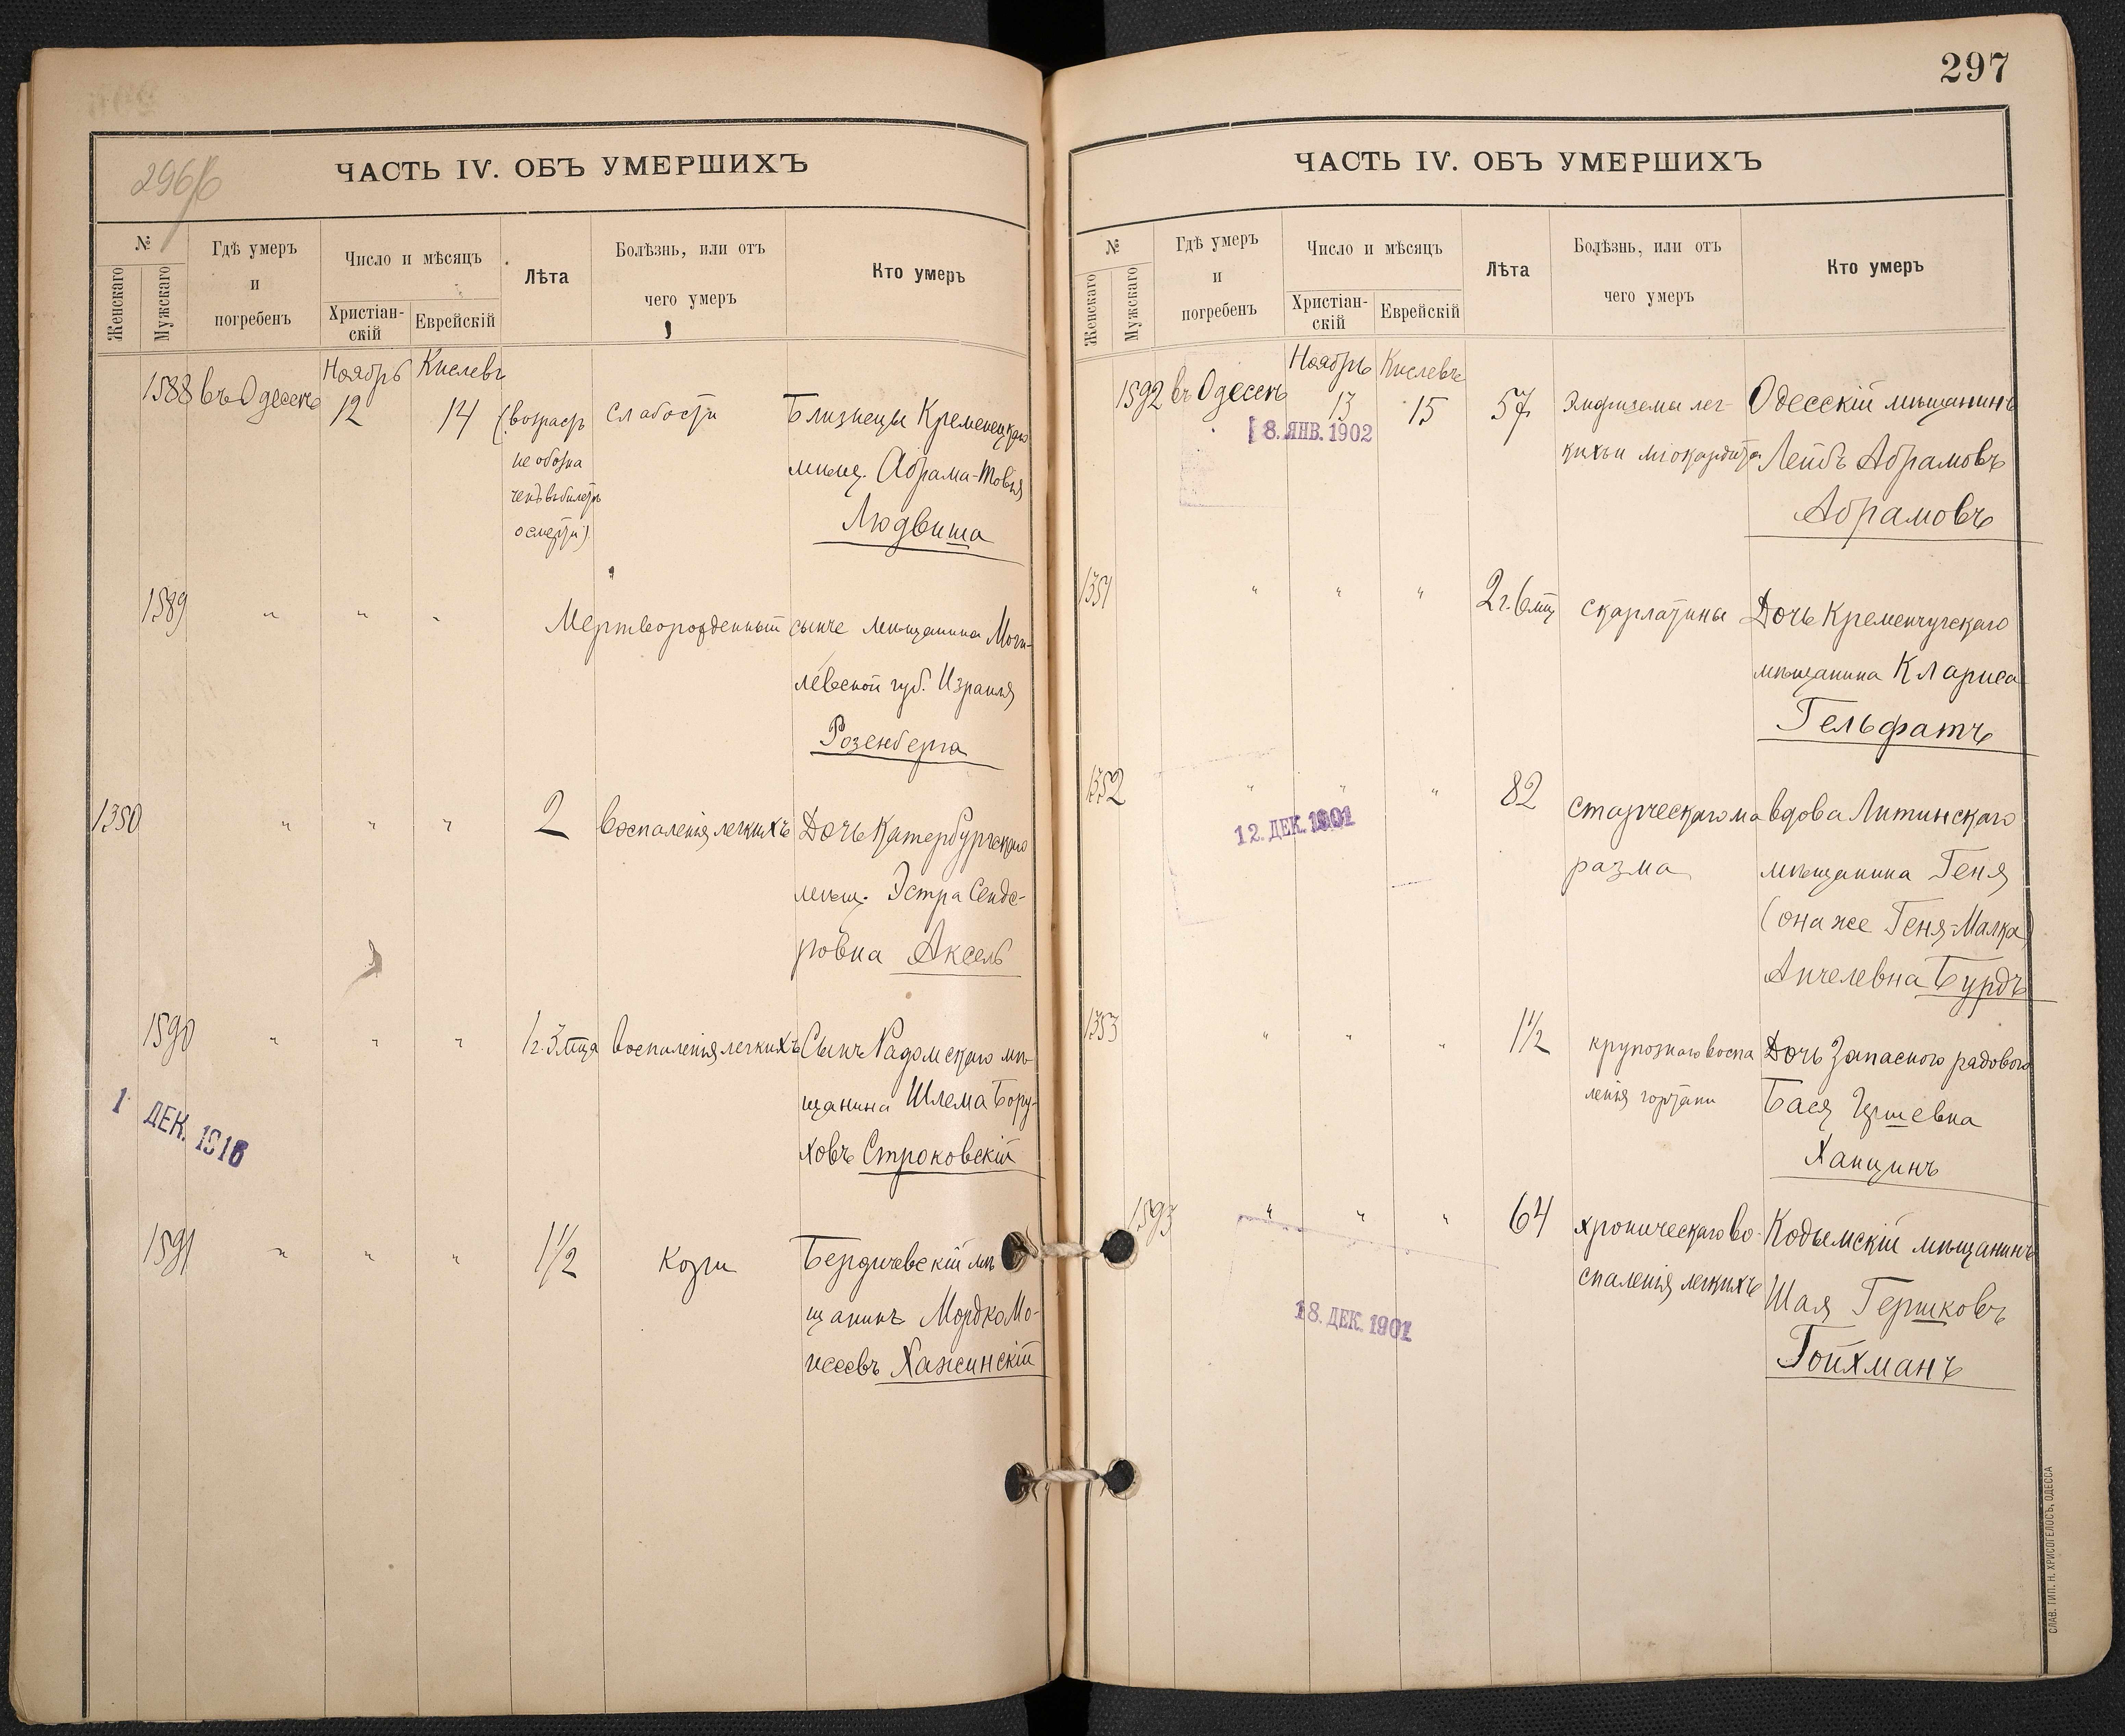 296/б
ЧАСТЬ IV. ОБЪ УМЕРШИХЪ
№
Женскаго
Мужскаго
Гдѣ умеръ
и
погребенъ
Число и мѣсяцъ
Христіан-
скій
Еврейскій
Лѣта
Болѣзнь, или отъ
чего умеръ
Кто умеръ
Ноябрь Кислевъ
1588 въ Одессѣ 12 14 (возрастъ слабости Близнецы Кременецкаго
не обозна мѣщ. Абрама-Товья
ченъ въ билетѣ Людвиша
о смерти)
1589 " " " Мертворожденный сынъ мѣщанина Моги-
левской губ. Израиля
Розенберга
1350 " " " 2 Воспаленія легкихъ Дочь Катербургскаго
мѣщ. Эстра Сенде-
ровна Аксель
1590 " " " 1 г. 3 мца Воспаленія легкихъ Сынъ Радомскаго мѣ-
щанина Шлема Бору-
ховъ Строковскій
1 ДЕК. 1916
1591 " " " 1½ Кори Бердичевскій мѣ
щанинъ Мордко Мо-
исеевъ Хажинскій
297
ЧАСТЬ IV. ОБЪ УМЕРШИХЪ
№
Женскаго
Мужскаго
Гдѣ умеръ
и
погребенъ
Число и мѣсяцъ
Христіан-
скій
Еврейскій
Лѣта
Болѣзнь, или отъ
чего умеръ
Кто умеръ
Ноябрь Кислевъ
1592 въ Одессѣ 13 15 57 Эмфиземы лег- Одесскій мѣщанинъ
8. ЯНВ. 1902
кихъ и міокардита Лейбъ Абрамовъ
Абрамовъ
1351 " " " 2 г. 6 мц скарлатины Дочь Кременчугскаго
мѣщанина Клариса
Гельфатъ
1352 " " " 82 старческаго ма вдова Литинскаго
12. ДЕК. 1901
разма мѣщанина Геня
(она же Геня-Малка)
Анчелевна Бурдъ
1353 " " " 1½ крупознаго воспа Дочь Запаснаго рядового
ленія гортани Бася Гершевна
Ханцинъ
1593 " " " 64 хроническаго во- Кодымскій мѣщанинъ
спаленія легкихъ Шая Гершковъ
18. ДЕК. 1901
Гойхманъ
СЛАВ. ТИП. Н. ХРИСОГЕЛОСЪ, ОДЕССА